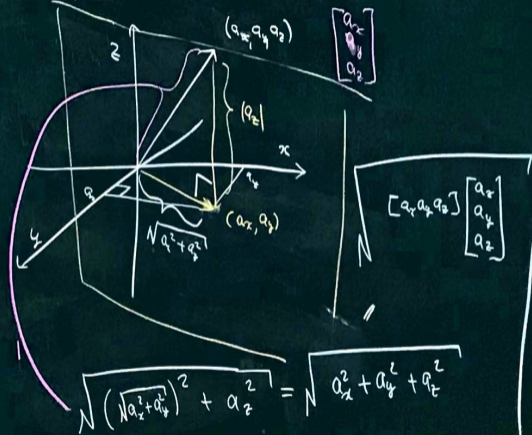 z
(aₓ, a_y, a_z)
[aₓ
a_y
a_z]
|a_z|
x
a_y
y
(aₓ, a_y)
√(aₓ² + a_y²)
√([aₓ a_y a_z] [aₓ
a_y
a_z])
√((√(aₓ² + a_y²))² + a_z²) = √(aₓ² + a_y² + a_z²)